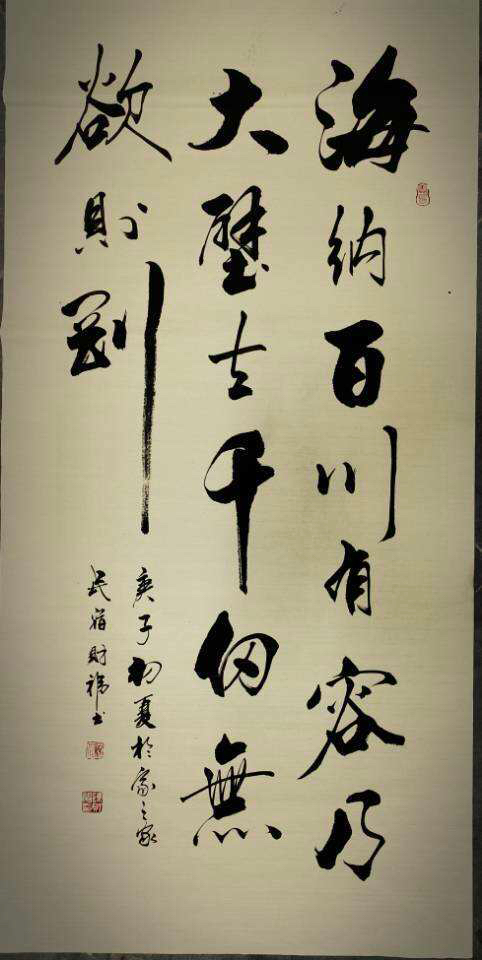 海納百川有容乃
大壁立千仞無
欲則剛
庚子初夏於之家
民財書